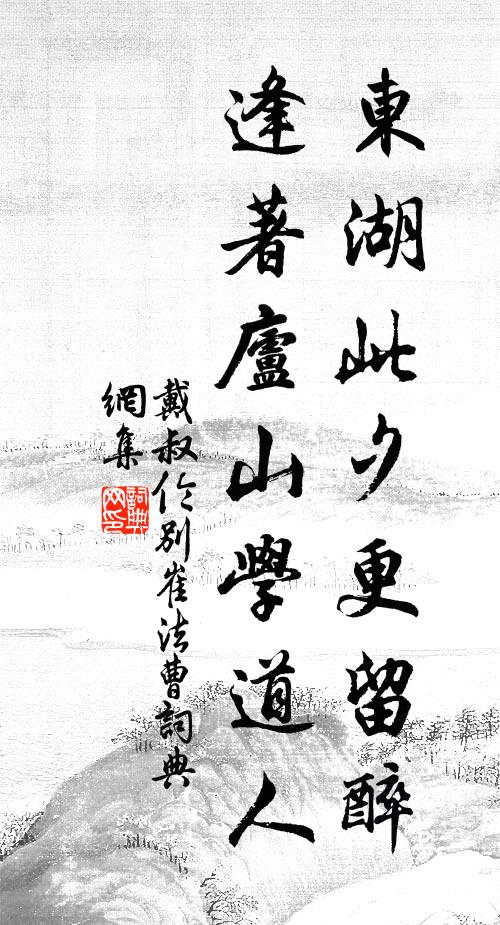 東湖此夕更留醉
逢著廬山學道人
戴叔伦別崔法曹詞典
網集
詞典
网印